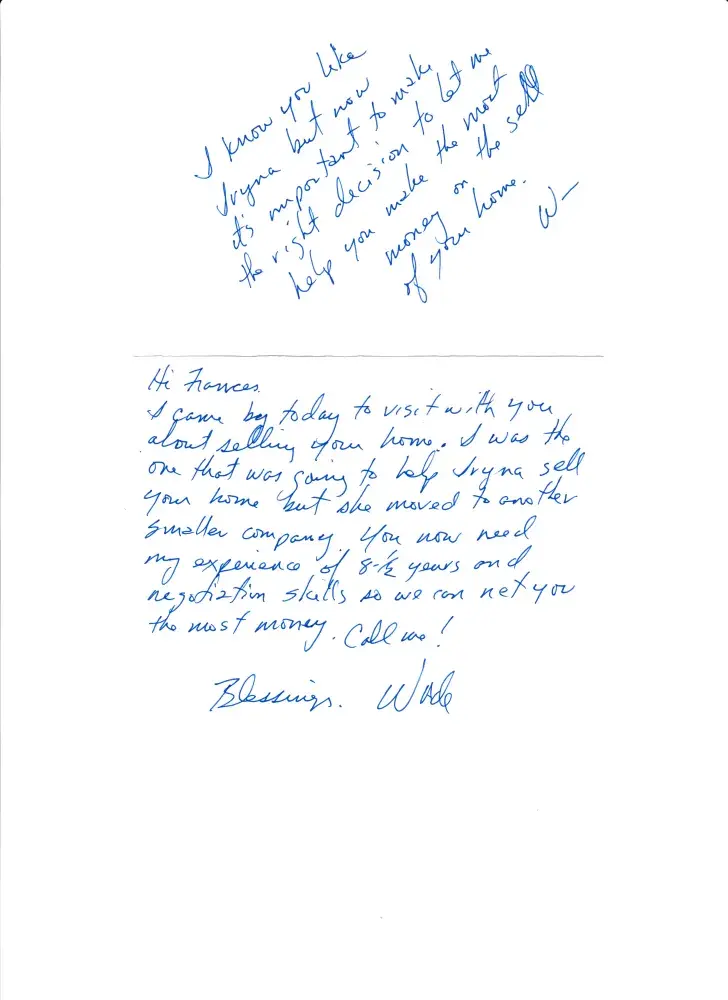 I know you like
Iryna but now
it's important to make
the right decision to let me
help you make the most
money on the sell
of your home.
W-
Hi Frances.
I came by today to visit with you
about selling your home. I was the
one that was going to help Iryna sell
your home but she moved to another
smaller company. You now need
my experience of 8-½ years and
negotiation skills so we can net you
the most money. Call me!
Blessings. Wade